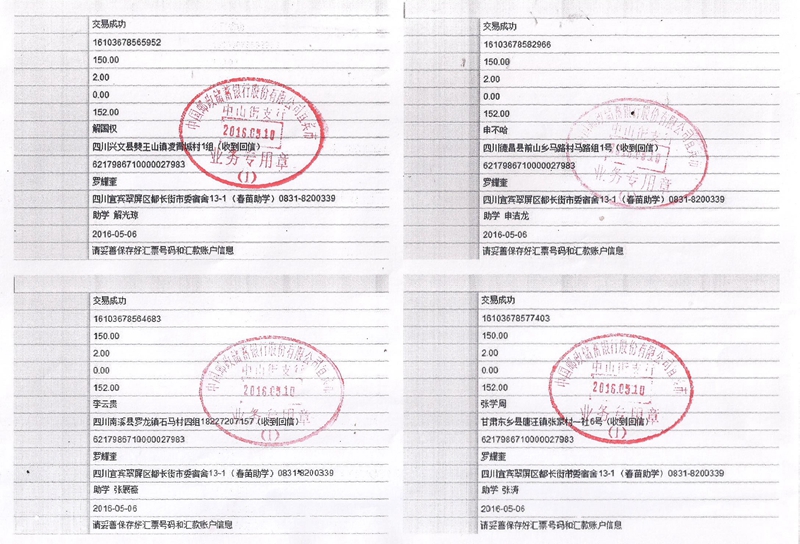 交易成功
16103678565952
150.00
2.00
0.00
152.00
解国权
四川兴文县僰王山镇凌霄城村1组 (收到回信)
6217986710000027983
罗耀奎
四川宜宾翠屏区都长街市委宿舍13-1 (春苗助学) 0831-8200339
助学 解光琼
2016-05-06
请妥善保存好汇票号码和汇款账户信息
中国邮政储蓄银行股份有限公司宜宾市
中山街支行
2016.05.10
业务专用章
(1)
交易成功
16103678582966
150.00
2.00
0.00
152.00
申不哈
四川隆昌县前山乡马路村马路组1号 (收到回信)
6217986710000027983
罗耀奎
四川宜宾翠屏区都长街市委宿舍13-1 (春苗助学) 0831-8200339
助学 申洁龙
2016-05-06
请妥善保存好汇票号码和汇款账户信息
中山街支行
业务专用章
交易成功
16103678564683
150.00
2.00
0.00
152.00
李云贵
四川南溪县罗龙镇石马村四组18227207157 (收到回信)
6217986710000027983
罗耀奎
四川宜宾翠屏区都长街市委宿舍13-1 (春苗助学) 0831-8200339
助学 张
2016-05-06
请妥善保存好汇票号码和汇款账户信息
中国邮政储蓄银行股份有限公司宜宾市
中山街支行
2016.05.10
业务专用章
(1)
交易成功
16103678577403
150.00
2.00
0.00
152.00
张学周
甘肃东乡县唐汪镇张家村一社6号 (收到回信)
6217986710000027983
罗耀奎
四川宜宾翠屏区都长街市委宿舍13-1 (春苗助学) 0831-8200339
助学 张涛
2016-05-06
请妥善保存好汇票号码和汇款账户信息
中国邮政储蓄银行股份有限公司宜宾市
中山街支行
2016.05.10
业务专用章
(1)